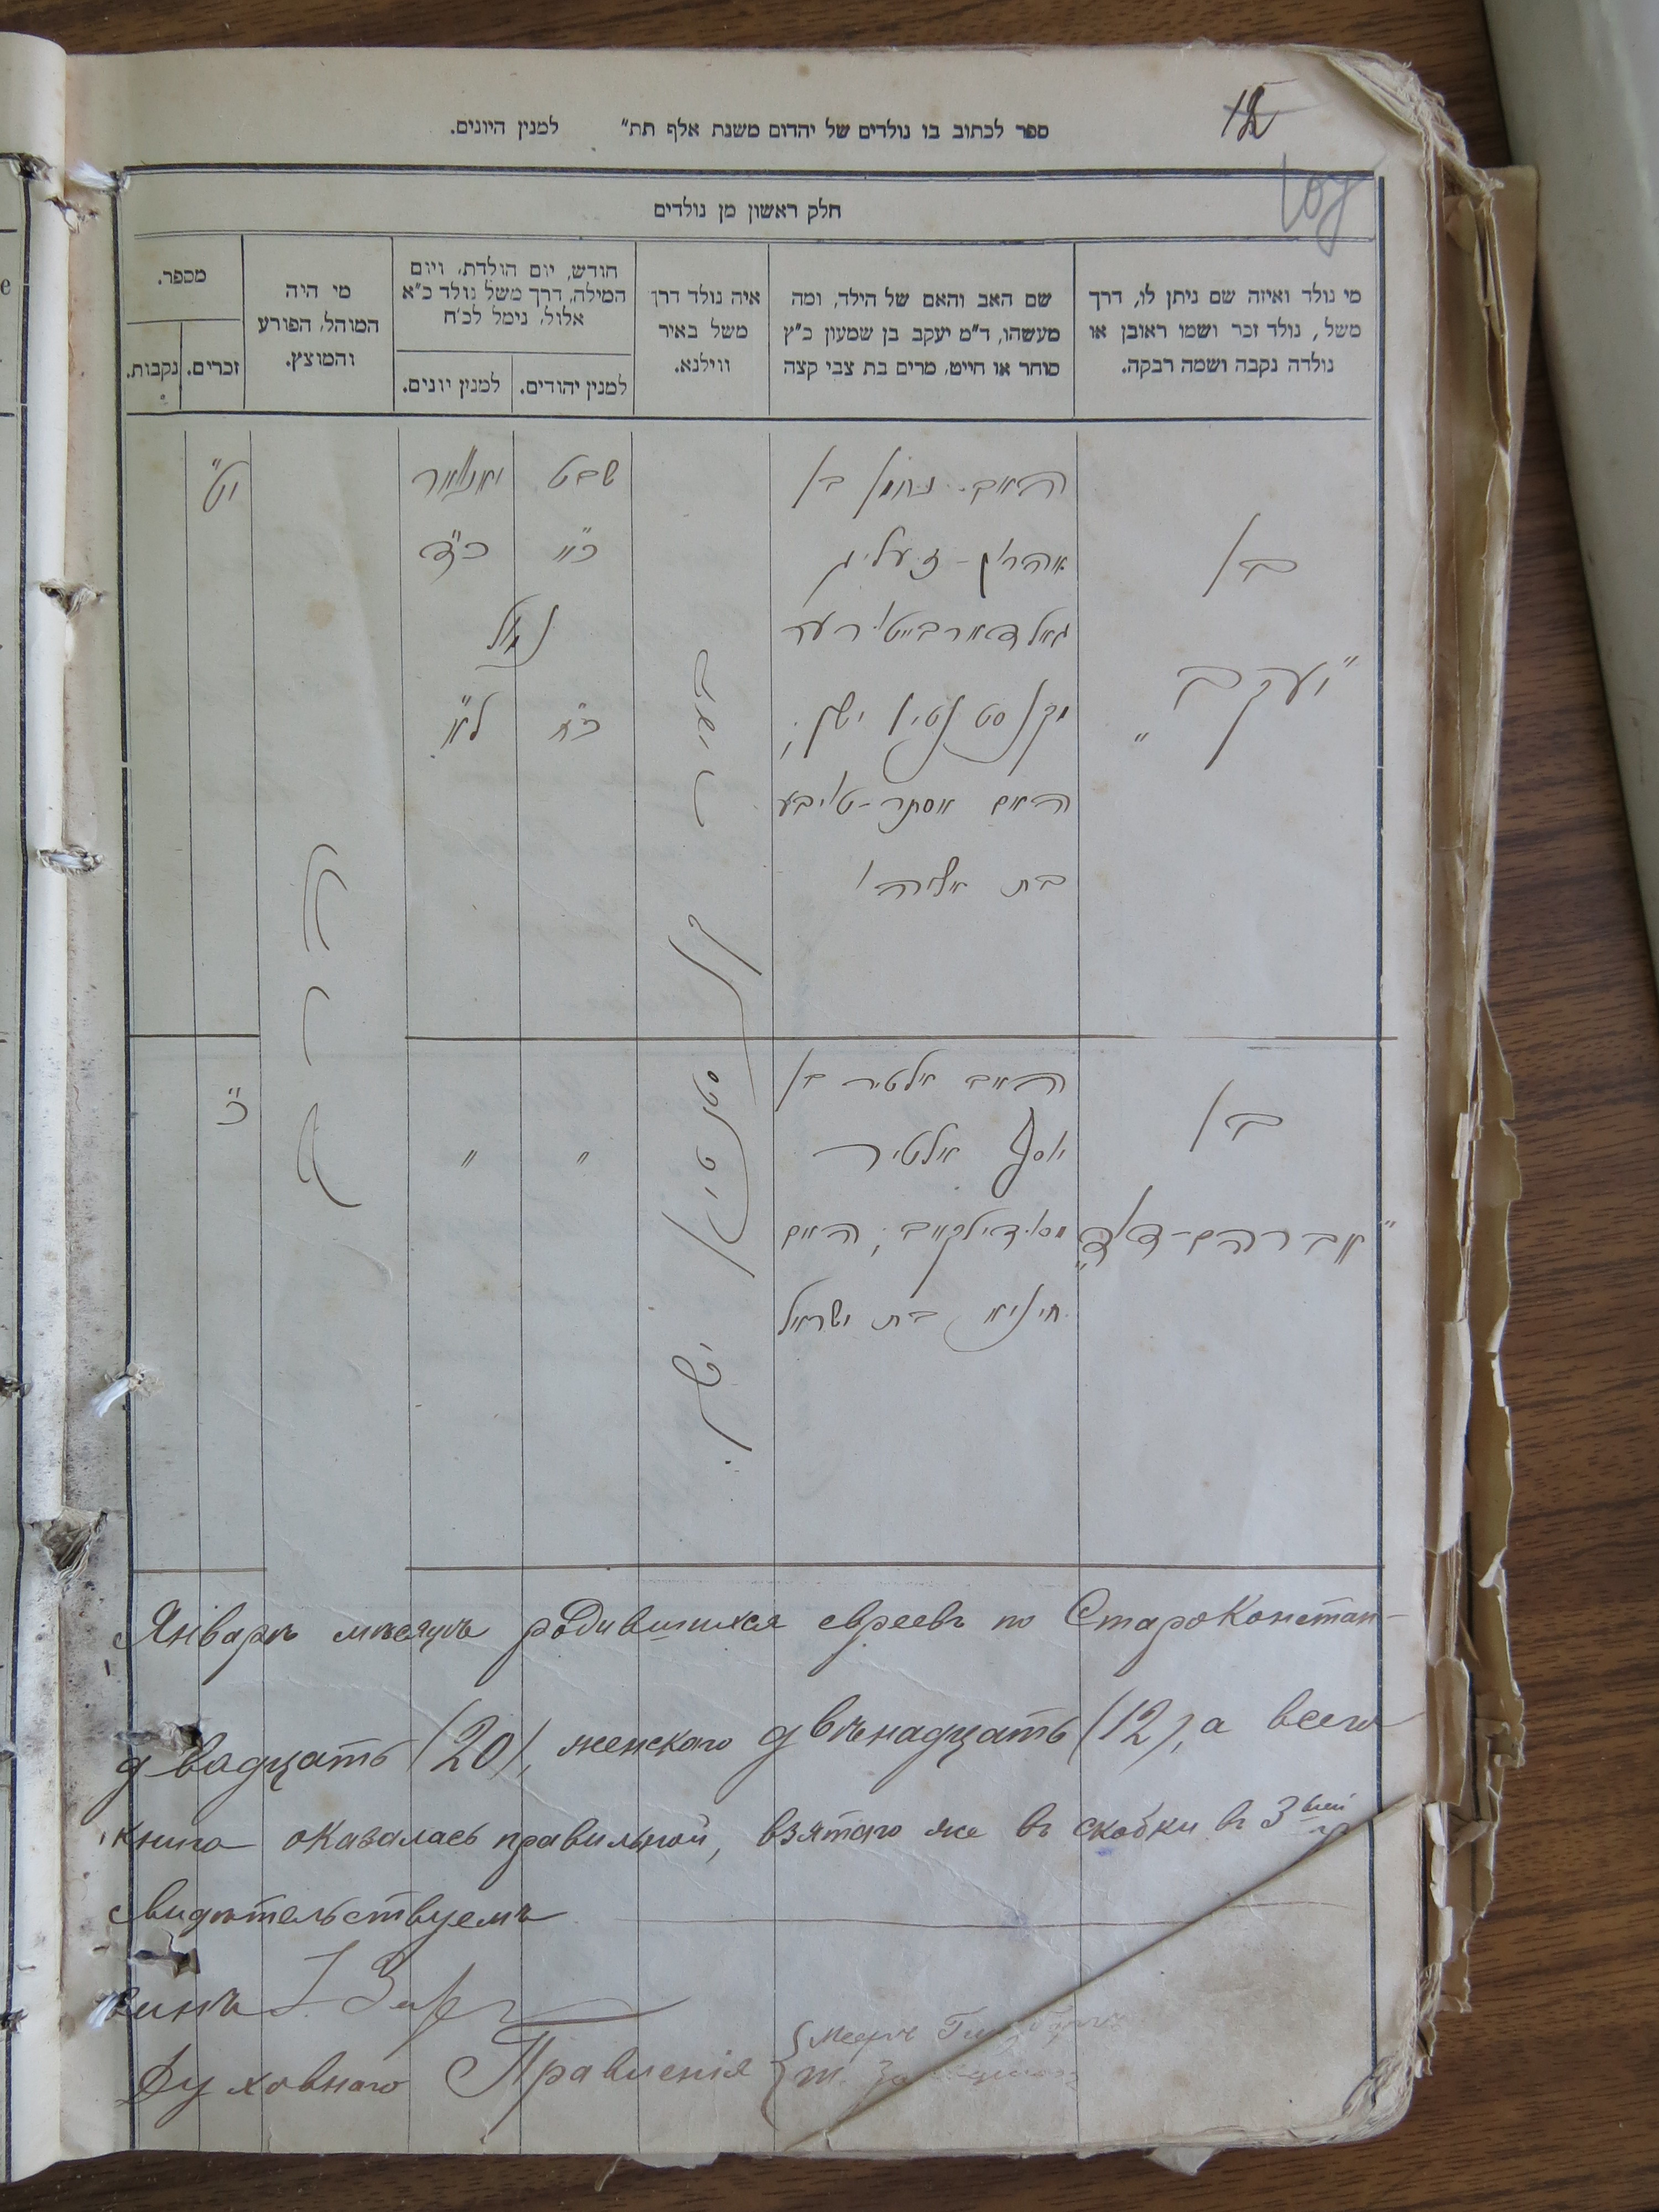 ספר לכתוב בו נולדים של יהדום משנת אלף תת" למנין היונים.
חלק ראשון מן נולדים
מי נולד ואיזה שם ניתן לו, דרך
משל, נולד זכר ושמו ראובן או
נולדה נקבה ושמה רבקה.
שם האב והאם של הילד, ומה
מעשהו, ד"מ יעקב בן שמעון כ"ץ
סוחר או חייט, מרים בת צבי קצה
איה נולד דרך
משל באיר
ווילנא.
חודש, יום הולדת, ויום
המילה, דרך משל נולד כ"א
אלול, נימל לכ"ח
למנין יהודים.
למנין יונים.
מי היה
המוהל, הפורע
והמוצץ.
מספר.
זכרים.
נקבות.
בן
"יעקב"
האב נחמן בן
אהרן-זעליג
גאלדארבייטער
קנסטנטין ישן;
האם אסתר-טויבע
בת אליהו
העיר
קנסטנטין
ישן.
שבט
יאנואר
כ"א
כ"ד
נמול
כ"ח
ל"א
י"ט
בן
"אברהם-דוד"
האב אלטיר בן
יוסף אלטיר
האם
חינא בת ישראל
"
"
כ"
Январь мѣсяцъ родившихся евреевъ по СтароКонстан-
двадцать (20), женскаго двѣнадцать (12), а всего
книга оказалась правильной, взятаго же въ скобки въ 3
свидѣтельствуемъ
Духовнаго Правленія